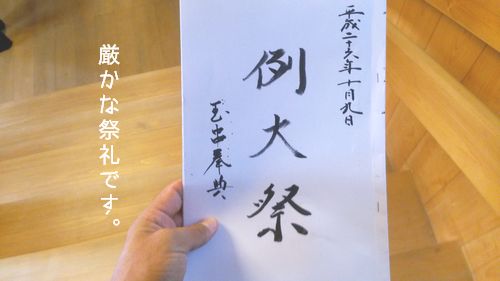 平成二十六年十月九日
例大祭
玉串奉奠
厳かな祭礼です。